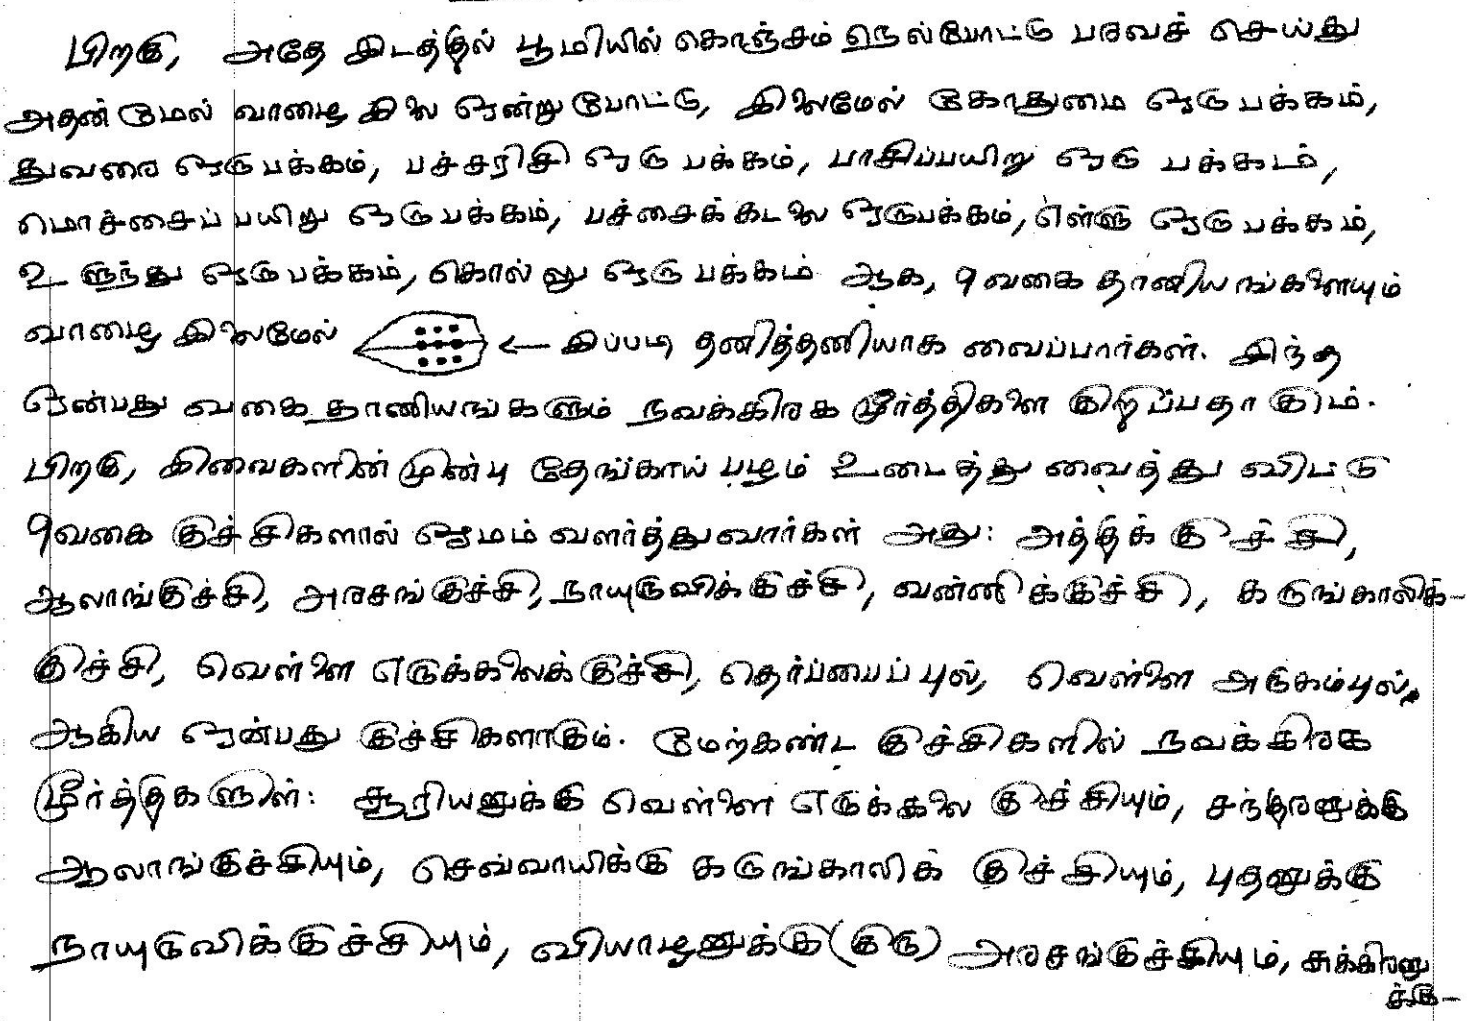 பிறகு, அதே இடத்தில் பூமியில் கொஞ்சம் நெல்போட்டு பரவச் செய்து
அதன் மேல் வாழை இலை ஒன்று போட்டு, இலைமேல் கோதுமை ஒரு பக்கம்,
துவரை ஒரு பக்கம், பச்சரிசி ஒரு பக்கம், பாசிப்பயிறு ஒரு பக்கம்,
மொச்சைப்பயிறு ஒரு பக்கம், பச்சைக்கடலை ஒருபக்கம், எள்ளு ஒரு பக்கம்,
உளுந்து ஒரு பக்கம், கொல்லு ஒரு பக்கம் ஆக, 9 வகை தானியங்களையும்
வாழை இலைமேல் ← இப்படி தனித்தனியாக வைப்பார்கள். இந்த
ஒன்பது வகை தானியங்களும் நவக்கிரக மூர்த்திகளை குறிப்பதாகும்.
பிறகு, இவைகளின் முன்பு தேங்காய் பழம் உடைத்து வைத்து விட்டு
9வகை குச்சிகளால் ஓமம் வளர்த்துவார்கள் அது: அத்திக் குச்சி,
ஆலாங்குச்சி, அரசங்குச்சி, நாயுருவிக்குச்சி, வன்னிக்குச்சி, கருங்காலிக்-
குச்சி, வெள்ளை எருக்கலைக்குச்சி, தெர்ப்பைப்புல், வெள்ளை அருகம்புல்,
ஆகிய ஒன்பது குச்சிகளாகும். மேற்கண்ட குச்சிகளில் நவக்கிரக
மூர்த்திகளுள்: சூரியனுக்கு வெள்ளை எருக்கலை குச்சியும், சந்திரனுக்கு
ஆலாங்குச்சியும், செவ்வாயிக்கு கருங்காலிக் குச்சியும், புதனுக்கு
நாயுருவிக்குச்சியும், வியாழனுக்கு (குரு) அரசங்குச்சியும், சுக்கிரனு
க்கு-